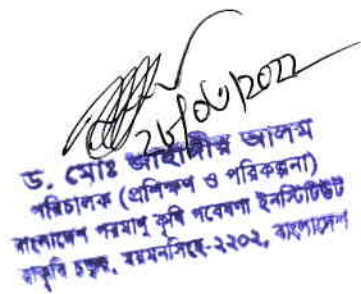 ২৮/০৮/২০২২
ড. মোঃ জাহাঙ্গীর আলম
পরিচালক (প্রশিক্ষণ ও পরিকল্পনা)
বাংলাদেশ পরমাণু কৃষি গবেষণা ইনস্টিটিউট
বাকৃবি চত্বর, ময়মনসিংহ-২২০২, বাংলাদেশ